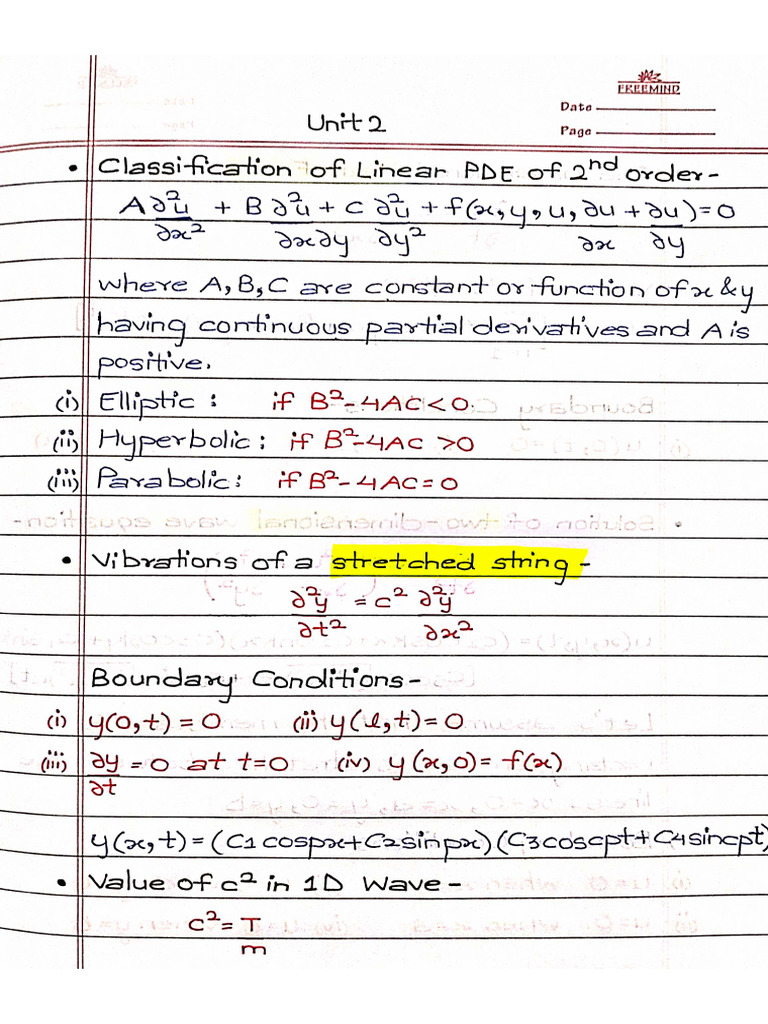 FREEMIND
Date
Page
Unit 2
• Classification of Linear PDE of 2nd order-
A ∂²u/∂x² + B ∂²u/∂x∂y + C ∂²u/∂y² + f(x, y, u, ∂u/∂x + ∂u/∂y) = 0
where A, B, C are constant or function of x & y
having continuous partial derivatives and A is
positive.
(i) Elliptic : if B²-4AC < 0.
(ii) Hyperbolic : if B²-4AC > 0
(iii) Parabolic : if B²-4AC = 0
• Vibrations of a stretched string -
∂²y/∂t² = c² ∂²y/∂x²
Boundary Conditions -
(i) y(0, t) = 0 (ii) y(l, t) = 0
(iii) ∂y/∂t = 0 at t=0 (iv) y(x, 0) = f(x)
y(x, t) = (C1 cospx + C2 sinpx) (C3 coscpt + C4 sincpt)
• Value of c² in 1D Wave -
c² = T/m